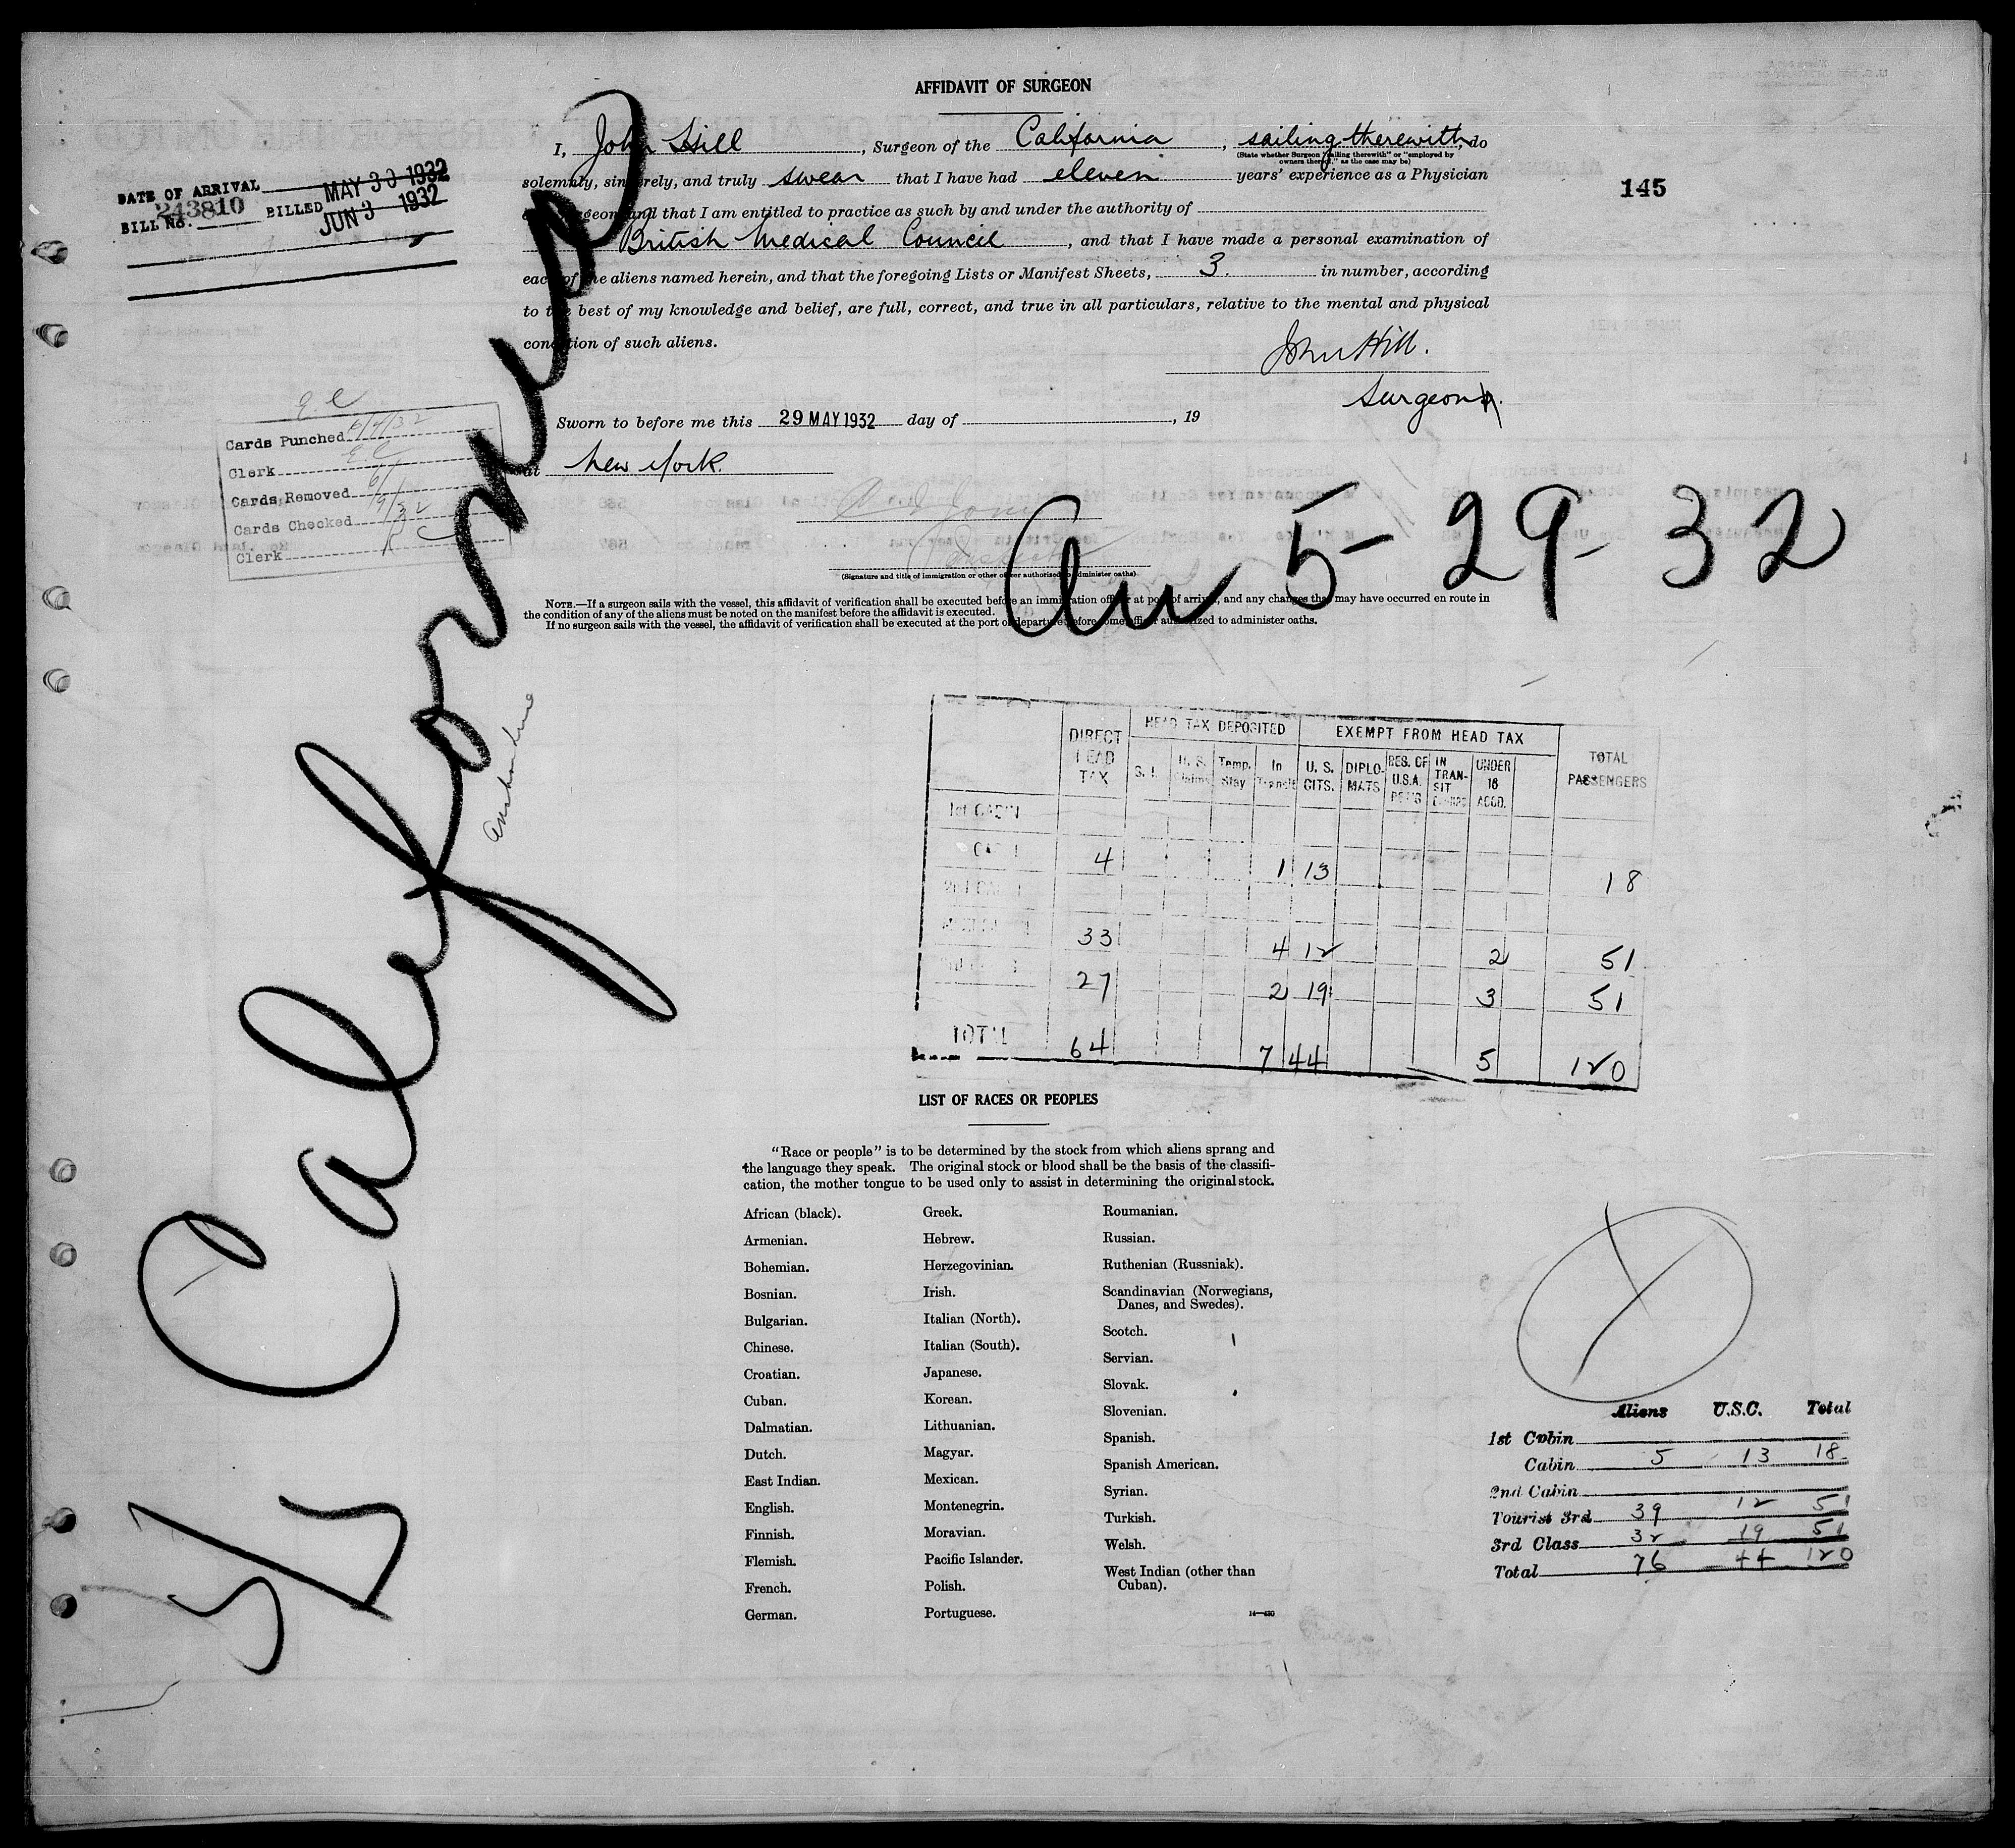 AFFIDAVIT OF SURGEON
I, John Hill, Surgeon of the California, sailing therewith, do
(State whether Surgeon "sailing therewith" or "employed by
owners thereof," as the case may be)
solemnly, sincerely, and truly swear that I have had eleven years' experience as a Physician
or Surgeon and that I am entitled to practice as such by and under the authority of
British Medical Council, and that I have made a personal examination of
each of the aliens named herein, and that the foregoing Lists or Manifest Sheets, 3. in number, according
to the best of my knowledge and belief, are full, correct, and true in all particulars, relative to the mental and physical
condition of such aliens.
John Hill.
Surgeon.
Sworn to before me this 29 MAY 1932 day of , 19
at New York.
(Signature and title of immigration or other officer authorized to administer oaths)
NOTE.—If a surgeon sails with the vessel, this affidavit of verification shall be executed before an immigration officer at port of arrival, and any changes that may have occurred en route in
the condition of any of the aliens must be noted on the manifest before the affidavit is executed.
If no surgeon sails with the vessel, the affidavit of verification shall be executed at the port of departure before some officer authorized to administer oaths.
145
DATE OF ARRIVAL MAY 30 1932
BILL No. 243810 BILLED JUN 3 1932
E C
Cards Punched 6/9/32
Clerk E.C
Cards Removed 6/1
Cards Checked 9/32
Clerk R C
S/S California
5-29-32
DIRECT HEAD TAX
HEAD TAX DEPOSITED
EXEMPT FROM HEAD TAX
TOTAL PASSENGERS
S. I. U. S. Claims Temp. Stay In Transit U. S. CITS. DIPLO-MATS RES. OF U.S.A. RET'G IN TRAN-SIT UNDER 16 ACCD.
1st CABIN
CABIN 4 1 13 18
2nd CABIN
33 4 12 2 51
27 2 19 3 51
TOTAL 64 7 44 5 120
LIST OF RACES OR PEOPLES
"Race or people" is to be determined by the stock from which aliens sprang and
the language they speak. The original stock or blood shall be the basis of the classifi-
cation, the mother tongue to be used only to assist in determining the original stock.
African (black).
Armenian.
Bohemian.
Bosnian.
Bulgarian.
Chinese.
Croatian.
Cuban.
Dalmatian.
Dutch.
East Indian.
English.
Finnish.
Flemish.
French.
German.
Greek.
Hebrew.
Herzegovinian.
Irish.
Italian (North).
Italian (South).
Japanese.
Korean.
Lithuanian.
Magyar.
Mexican.
Montenegrin.
Moravian.
Pacific Islander.
Polish.
Portuguese.
Roumanian.
Russian.
Ruthenian (Russniak).
Scandinavian (Norwegians,
Danes, and Swedes).
Scotch.
Servian.
Slovak.
Slovenian.
Spanish.
Spanish American.
Syrian.
Turkish.
Welsh.
West Indian (other than
Cuban).
14—430
Aliens U.S.C. Total
1st Cabin
Cabin 5 13 18
2nd Cabin
Tourist 3rd 39 12 51
3rd Class 32 19 51
Total 76 44 120